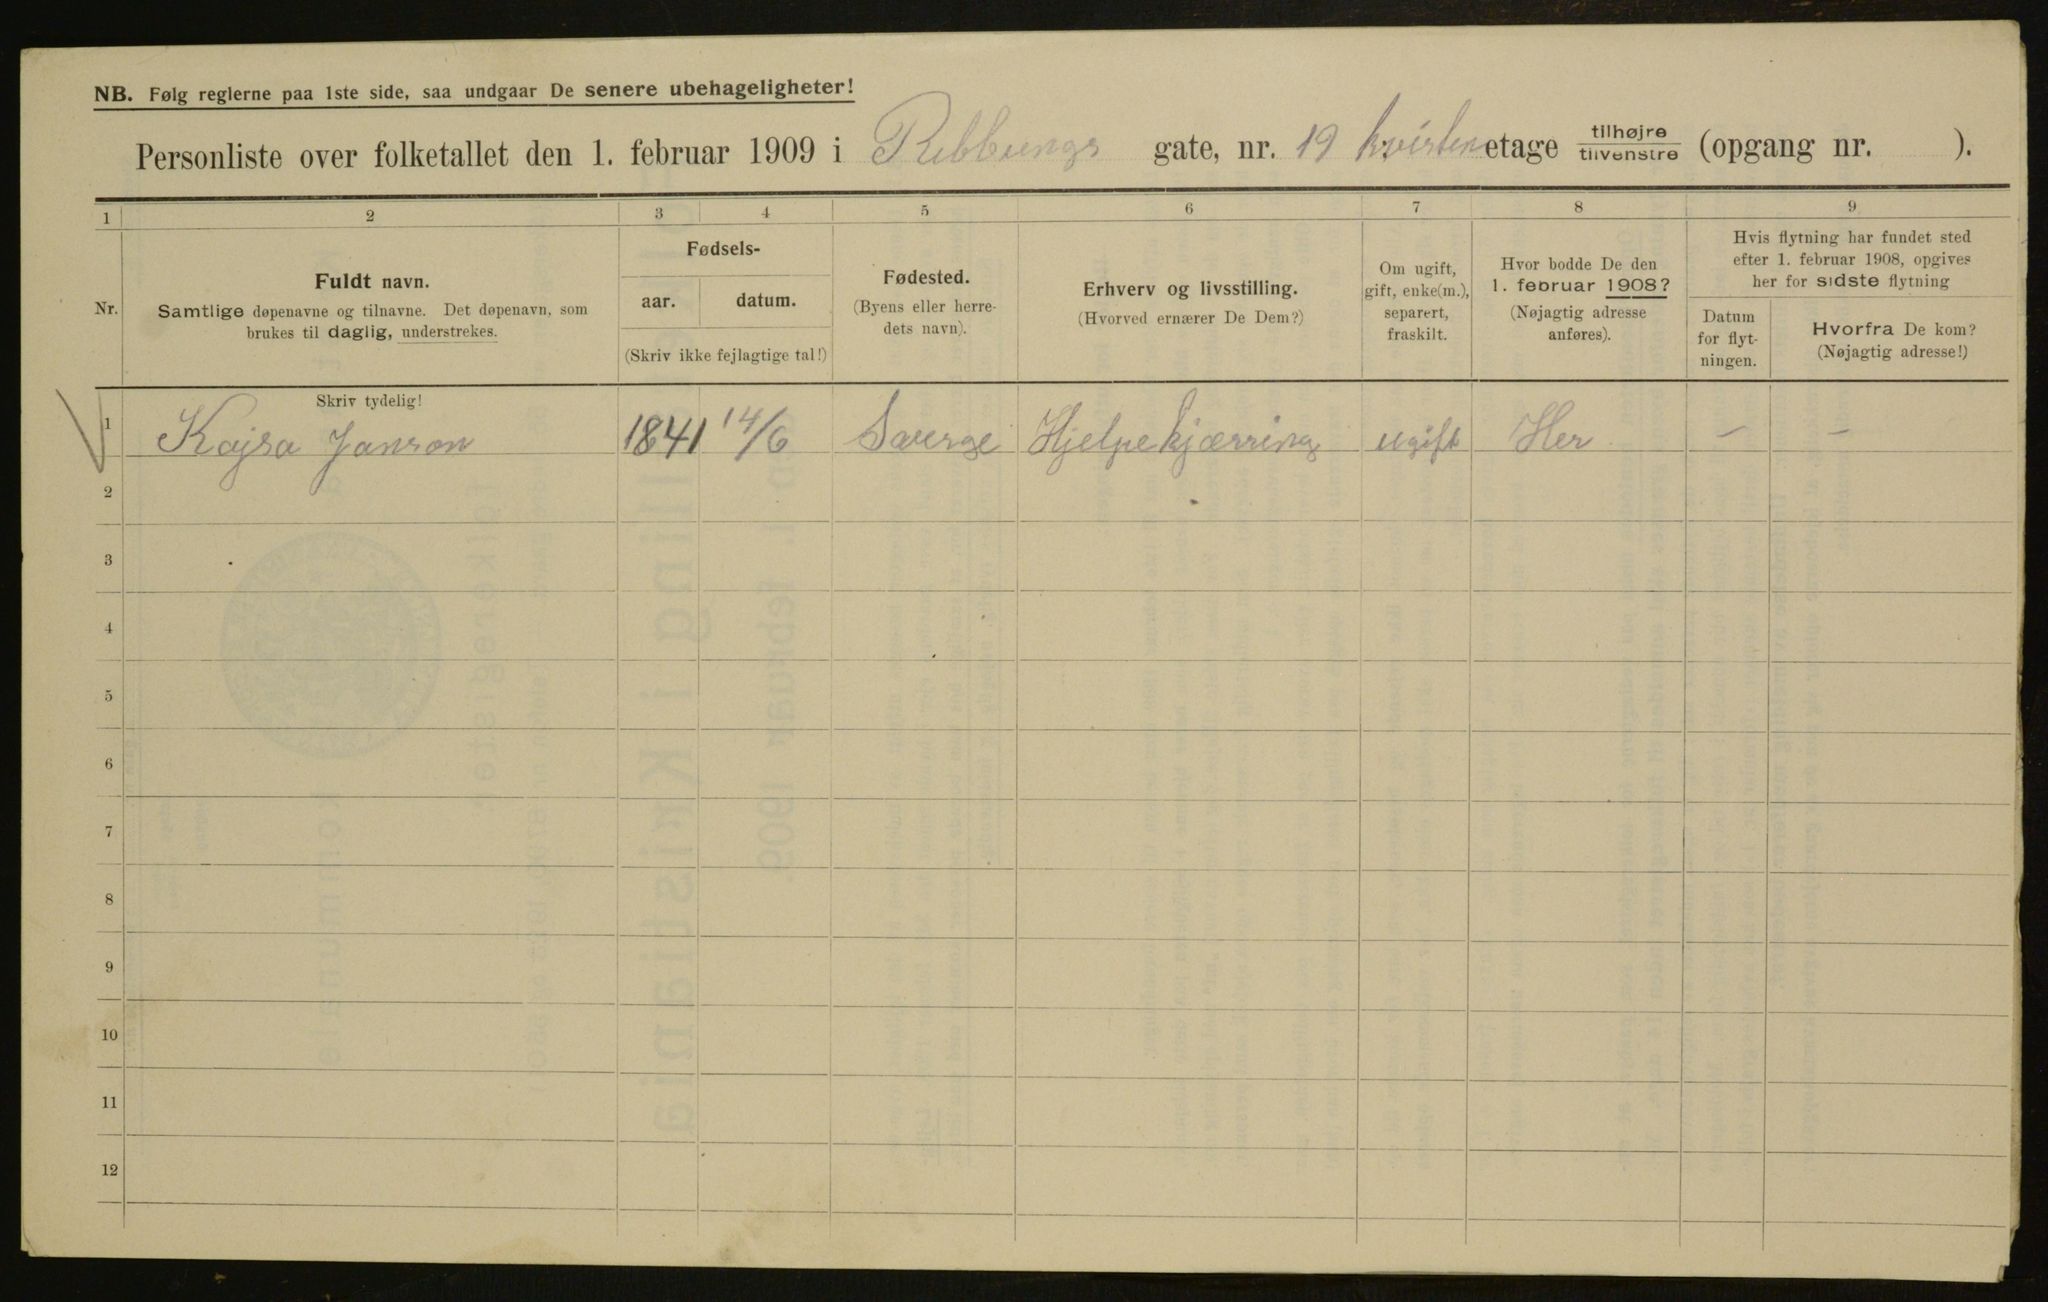 NB. Følg reglerne paa 1ste side, saa undgaar De senere ubehageligheter!
Personliste over folketallet den 1. februar 1909 i Ribbungs gate, nr. 19 kvisten etage tilhøjre / tilvenstre (opgang nr. ).
1 2 3 4 5 6 7 8 9
Nr.
Fuldt navn.
Samtlige døpenavne og tilnavne. Det døpenavn, som
brukes til daglig, understrekes.
Fødsels-
aar. datum.
(Skriv ikke fejlagtige tal!)
Fødested.
(Byens eller herre-
dets navn).
Erhverv og livsstilling.
(Hvorved ernærer De Dem?)
Om ugift,
gift, enke(m.),
separert,
fraskilt.
Hvor bodde De den
1. februar 1908?
(Nøjagtig adresse
anføres).
Hvis flytning har fundet sted
efter 1. februar 1908, opgives
her for sidste flytning
Datum
for flyt-
ningen.
Hvorfra De kom?
(Nøjagtig adresse!)
Skriv tydelig!
1 Kajsa Janson 1841 14/6 Sverge Hjelpekjærring ugift Her — —
2
3
4
5
6
7
8
9
10
11
12